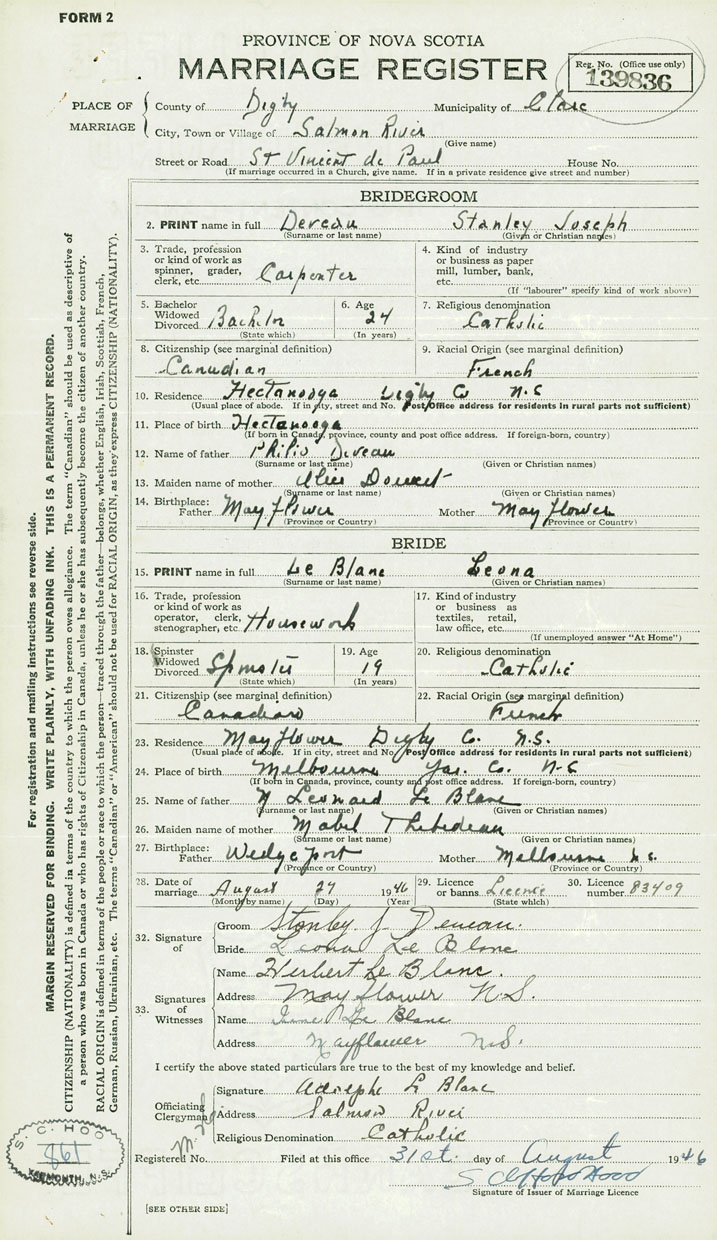 FORM 2
PROVINCE OF NOVA SCOTIA
MARRIAGE REGISTER
Reg. No. (Office use only)
139836
PLACE OF MARRIAGE
County of Digby Municipality of Clare
City, Town or Village of Salmon River
(Give name)
Street or Road St Vincent de Paul House No.
(If marriage occurred in a Church, give name. If in a private residence give street and number)
BRIDEGROOM
2. PRINT name in full Deveau Stanley Joseph
(Surname or last name) (Given or Christian names)
3. Trade, profession or kind of work as spinner, grader, clerk, etc. Carpenter
4. Kind of industry or business as paper mill, lumber, bank, etc.
(If "labourer" specify kind of work above)
5. Bachelor Widowed Divorced Bachelor
(State which)
6. Age 24
(In years)
7. Religious denomination
Catholic
8. Citizenship (see marginal definition)
Canadian
9. Racial Origin (see marginal definition)
French
10. Residence Hectanooga Digby Co N.S
(Usual place of abode. If in city, street and No. Post Office address for residents in rural parts not sufficient)
11. Place of birth Hectanooga
(If born in Canada, province, county and post office address. If foreign-born, country)
12. Name of father Philip Deveau
(Surname or last name) (Given or Christian names)
13. Maiden name of mother Alice Doucet
(Surname or last name) (Given or Christian names)
14. Birthplace: Father May flower Mother May flower
(Province or Country) (Province or Country)
BRIDE
15. PRINT name in full Le Blanc Leona
(Surname or last name) (Given or Christian names)
16. Trade, profession or kind of work as operator, clerk, stenographer, etc. Housework
17. Kind of industry or business as textiles, retail, law office, etc.
(If unemployed answer "At Home")
18. Spinster Widowed Divorced Spinster
(State which)
19. Age 19
(In years)
20. Religious denomination
Catholic
21. Citizenship (see marginal definition)
Canadian
22. Racial Origin (see marginal definition)
French
23. Residence May flower Digby Co. N.S.
(Usual place of abode. If in city, street and No. Post Office address for residents in rural parts not sufficient)
24. Place of birth Melbourne Yar. Co. N-S
(If born in Canada, province, county and post office address. If foreign-born, country)
25. Name of father Leonard Le Blanc
(Surname or last name) (Given or Christian names)
26. Maiden name of mother Mabel Thebedeau
(Surname or last name) (Given or Christian names)
27. Birthplace: Father Wedge port Mother Melbourne N.S.
(Province or Country) (Province or Country)
28. Date of marriage August 27 1946
(Month by name) (Day) (Year
29. Licence or banns Licence
(State which)
30. Licence number 83409
32. Signature of
Groom Stanley J Deveau.
Bride Leona Le Blanc
33. Signatures of Witnesses
Name Herbert Le Blanc.
Address May flower N.S.
Name Le Blanc
Address Mayflower N.S.
I certify the above stated particulars are true to the best of my knowledge and belief.
Officiating Clergyman
Signature Adolphe Le Blanc
Address Salmon River
Religious Denomination Catholic
Registered No. Filed at this office 31st. day of August 1946
S Clifford Hood
Signature of Issuer of Marriage Licence
[SEE OTHER SIDE]
For registration and mailing instructions see reverse side.
MARGIN RESERVED FOR BINDING. WRITE PLAINLY, WITH UNFADING INK. THIS IS A PERMANENT RECORD.
CITIZENSHIP (NATIONALITY) is defined in terms of the country to which the person owes allegiance. The term "Canadian" should be used as descriptive of
a person who was born in Canada or who has rights of Citizenship in Canada, unless he or she has subsequently become the citizen of another country.
RACIAL ORIGIN is defined in terms of the people or race to which the person—traced through the father—belongs, whether English, Irish, Scottish, French,
German, Russian, Ukrainian, etc. The terms "Canadian" or "American" should not be used for RACIAL ORIGIN, as they express CITIZENSHIP (NATIONALITY).
S. C. HOOD
861
YARMOUTH, N.S.